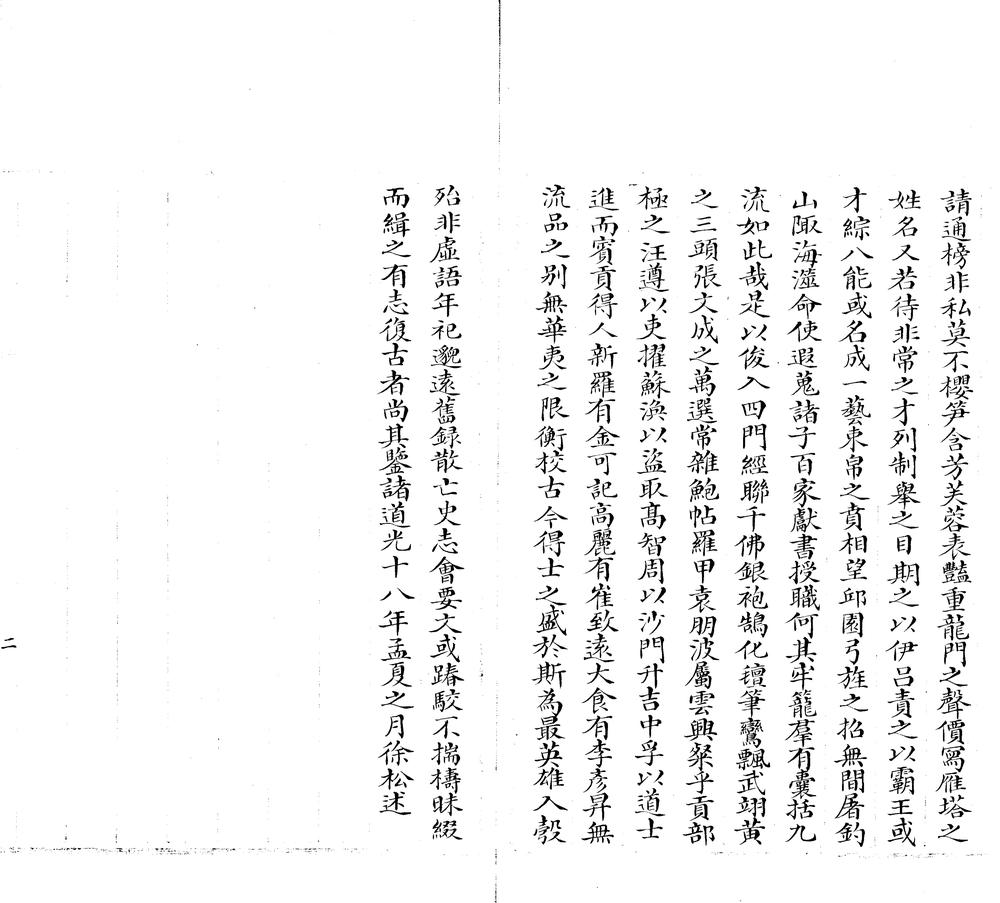 請通榜非私莫不櫻笋含芳芙蓉表豔重龍門之聲價寫雁塔之
姓名又若待非常之才列制舉之目期之以伊呂責之以霸王或
才綜八能或名成一藝束帛之賁相望邱園弓旌之招無間屠釣
山陬海澨命使遐蒐諸子百家獻書授職何其牢籠羣有囊括九
流如此哉是以俊入四門經聯千佛銀袍鵠化鐘筆鸞飄武翊黃
之三頭張文成之萬選常雜鮑帖羅甲袁朋波屬雲興粲乎貢部
極之汪遵以吏擢蘇渙以盜取高智周以沙門升吉中孚以道士
進而賓貢得人新羅有金可記高麗有崔致遠大食有李彥昇無
流品之別無華夷之限衡校古今得士之盛於斯為最英雄入彀
殆非虛語年祀邈遠舊錄散亡史志會要文或踳駮不揣檮昧綴
而緝之有志復古者尚其鑒諸道光十八年孟夏之月徐松述
二